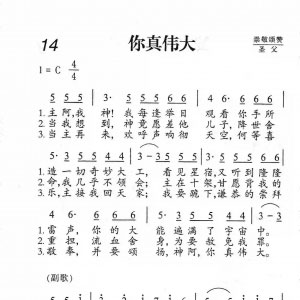 14 你真伟大 崇敬颂赞
圣父
1=C 4/4
5 5 5 | 3· 5 5 5 5 4 4 | 6· 6 6 6 5 5 3
1.主阿,我 神! 我每逢举目 观看你手所
2.当我想 到, 神竟愿差他 儿子,降世舍
3.当主再 来, 欢呼声响彻 天空,何等喜
5· 3 5 5 5 4 4 | 3 — 3 5 5 5 | 3· 5 5 5 5 4 4
1.造一切奇妙大工, 看见星宿,又听到隆隆
2.命,我几乎不领会; 主在十架,甘愿背我的
3.乐,主接我回天家; 我要跪下,谦恭的崇拜
4 6· 6 6 6 5 5 3 | 3 2 1 | 1 — 3
1.雷声, 你的大能遍满了宇宙中。
2.重担, 流血舍身,为要赦免我罪。
3.敬奉, 并要颂扬神阿,你真伟大。
(副歌)